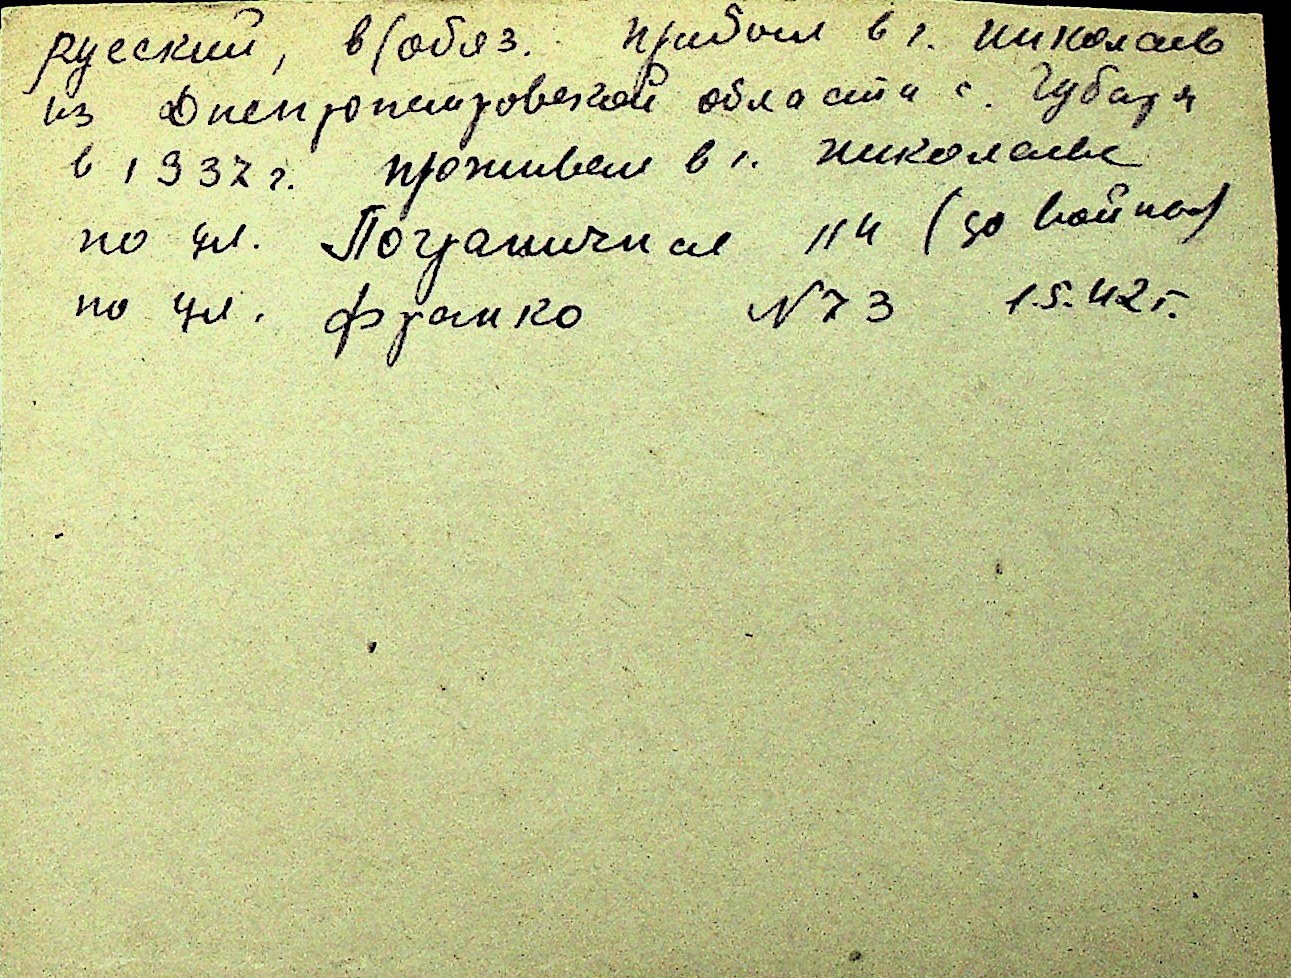 русский, в/обяз. прибыл в г. Николаев
из Днепропетровской области с. Чубаря
в 1937 г. проживал в г. Николаеве
по ул. Пограничная 114 (до войны)
по ул. Франко №73 15.42 г.